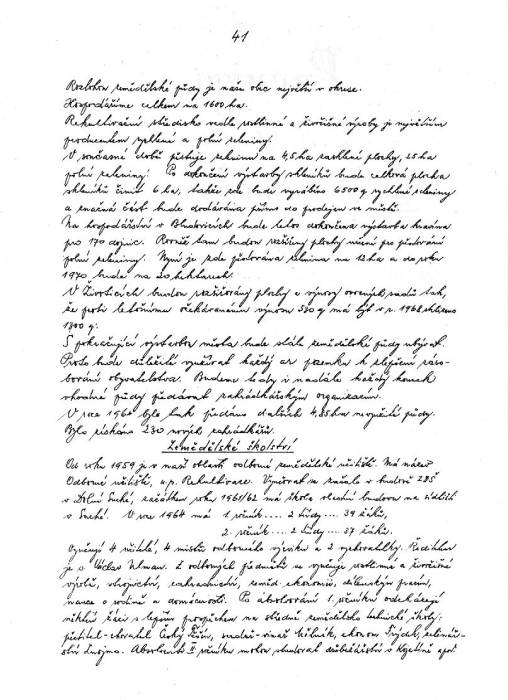 41
Rozlohou zemědělské půdy je naše obec největší v okrese.
Hospodaříme celkem na 1600 ha.
Rekultivační středisko vedle rostlinné a živočišné výroby je největším
producentem rychlené a polní zeleniny.
V současné době pěstuje zeleninu na 4,5 ha zasklené plochy, 25 ha
polní zeleniny. Po dokončení výstavby skleníků bude celková plocha
skleníků činit 6 ha, takže zde bude vyráběno 6500 q rychlené zeleniny
a značná část bude dodávána přímo do prodejen ve městě.
Na hospodářství v Bludovicích bude letos dokončena výstavba kravína
pro 170 dojnic. Rovněž tam budou rozšířeny plochy určené pro pěstování
polní zeleniny. Nyní je zde pěstována zelenina na 12 ha a do roku
1970 bude na 20 hektarech.
V Životicích budou rozšiřovány plochy a výnosy ovocných sadů tak,
že proti letošnímu očekávanému výnosu 580 q má být v r. 1968 sklizeno
1800 q.
S pokračující výstavbou města bude stále zemědělské půdy ubývat.
Proto bude důležité využívat každý ar pozemku k zlepšení záso-
bování obyvatelstva. Budeme tedy i nadále každý kousek
vhodné půdy předávat zahrádkářským organizacím.
V roce 1960 bylo tak předáno dalších 4,85 ha nevyužité půdy.
Bylo získáno 230 nových zahrádkářů.
Zemědělské školství
Od roku 1959 je v naší oblasti odborné zemědělské učiliště. Má název
Odborné učiliště, n.p. Rekultivace. Vyučovat se začalo v budově ZDŠ
v Dolní Suché, začátkem roku 1961/62 má škola vlastní budovu na sídlišti
v Suché. V roce 1964 má 1. ročník .... 2 třídy .... 39 žáků,
2. ročník .... 2 třídy .... 37 žáků.
Vyučují 4 učitelé, 4 mistři odborného výcviku a 2 vychovatelky. Ředitelem
je s. Václav Ulman. Z odborných předmětů se vyučuje rostlinné a živočišné
výrobě, strojnictví, zahradnictví, zeměd. ekonomice, dílenským pracím,
nauce o rodině a domácnosti. Po absolvování 1. ročníku odcházejí
někteří žáci s lepším prospěchem na střední zemědělsko technické školy:
pěstitel-chovatel Český Těšín, sadař-vinař Mělník, ekonom Frýdek, zelinář-
ství Znojmo. Absolventi II. ročníku mohou studovat drůbežářství v Kojetíně apod.